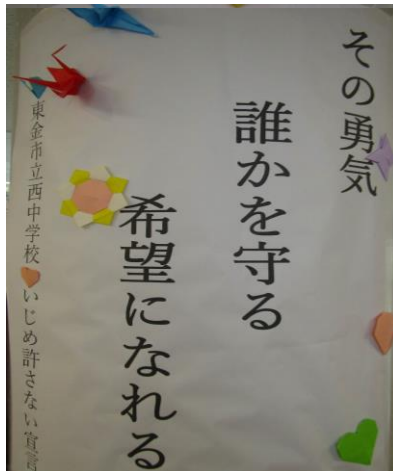 その勇気
誰かを守る
希望になれる
東金市立西中学校 いじめ許さない宣言